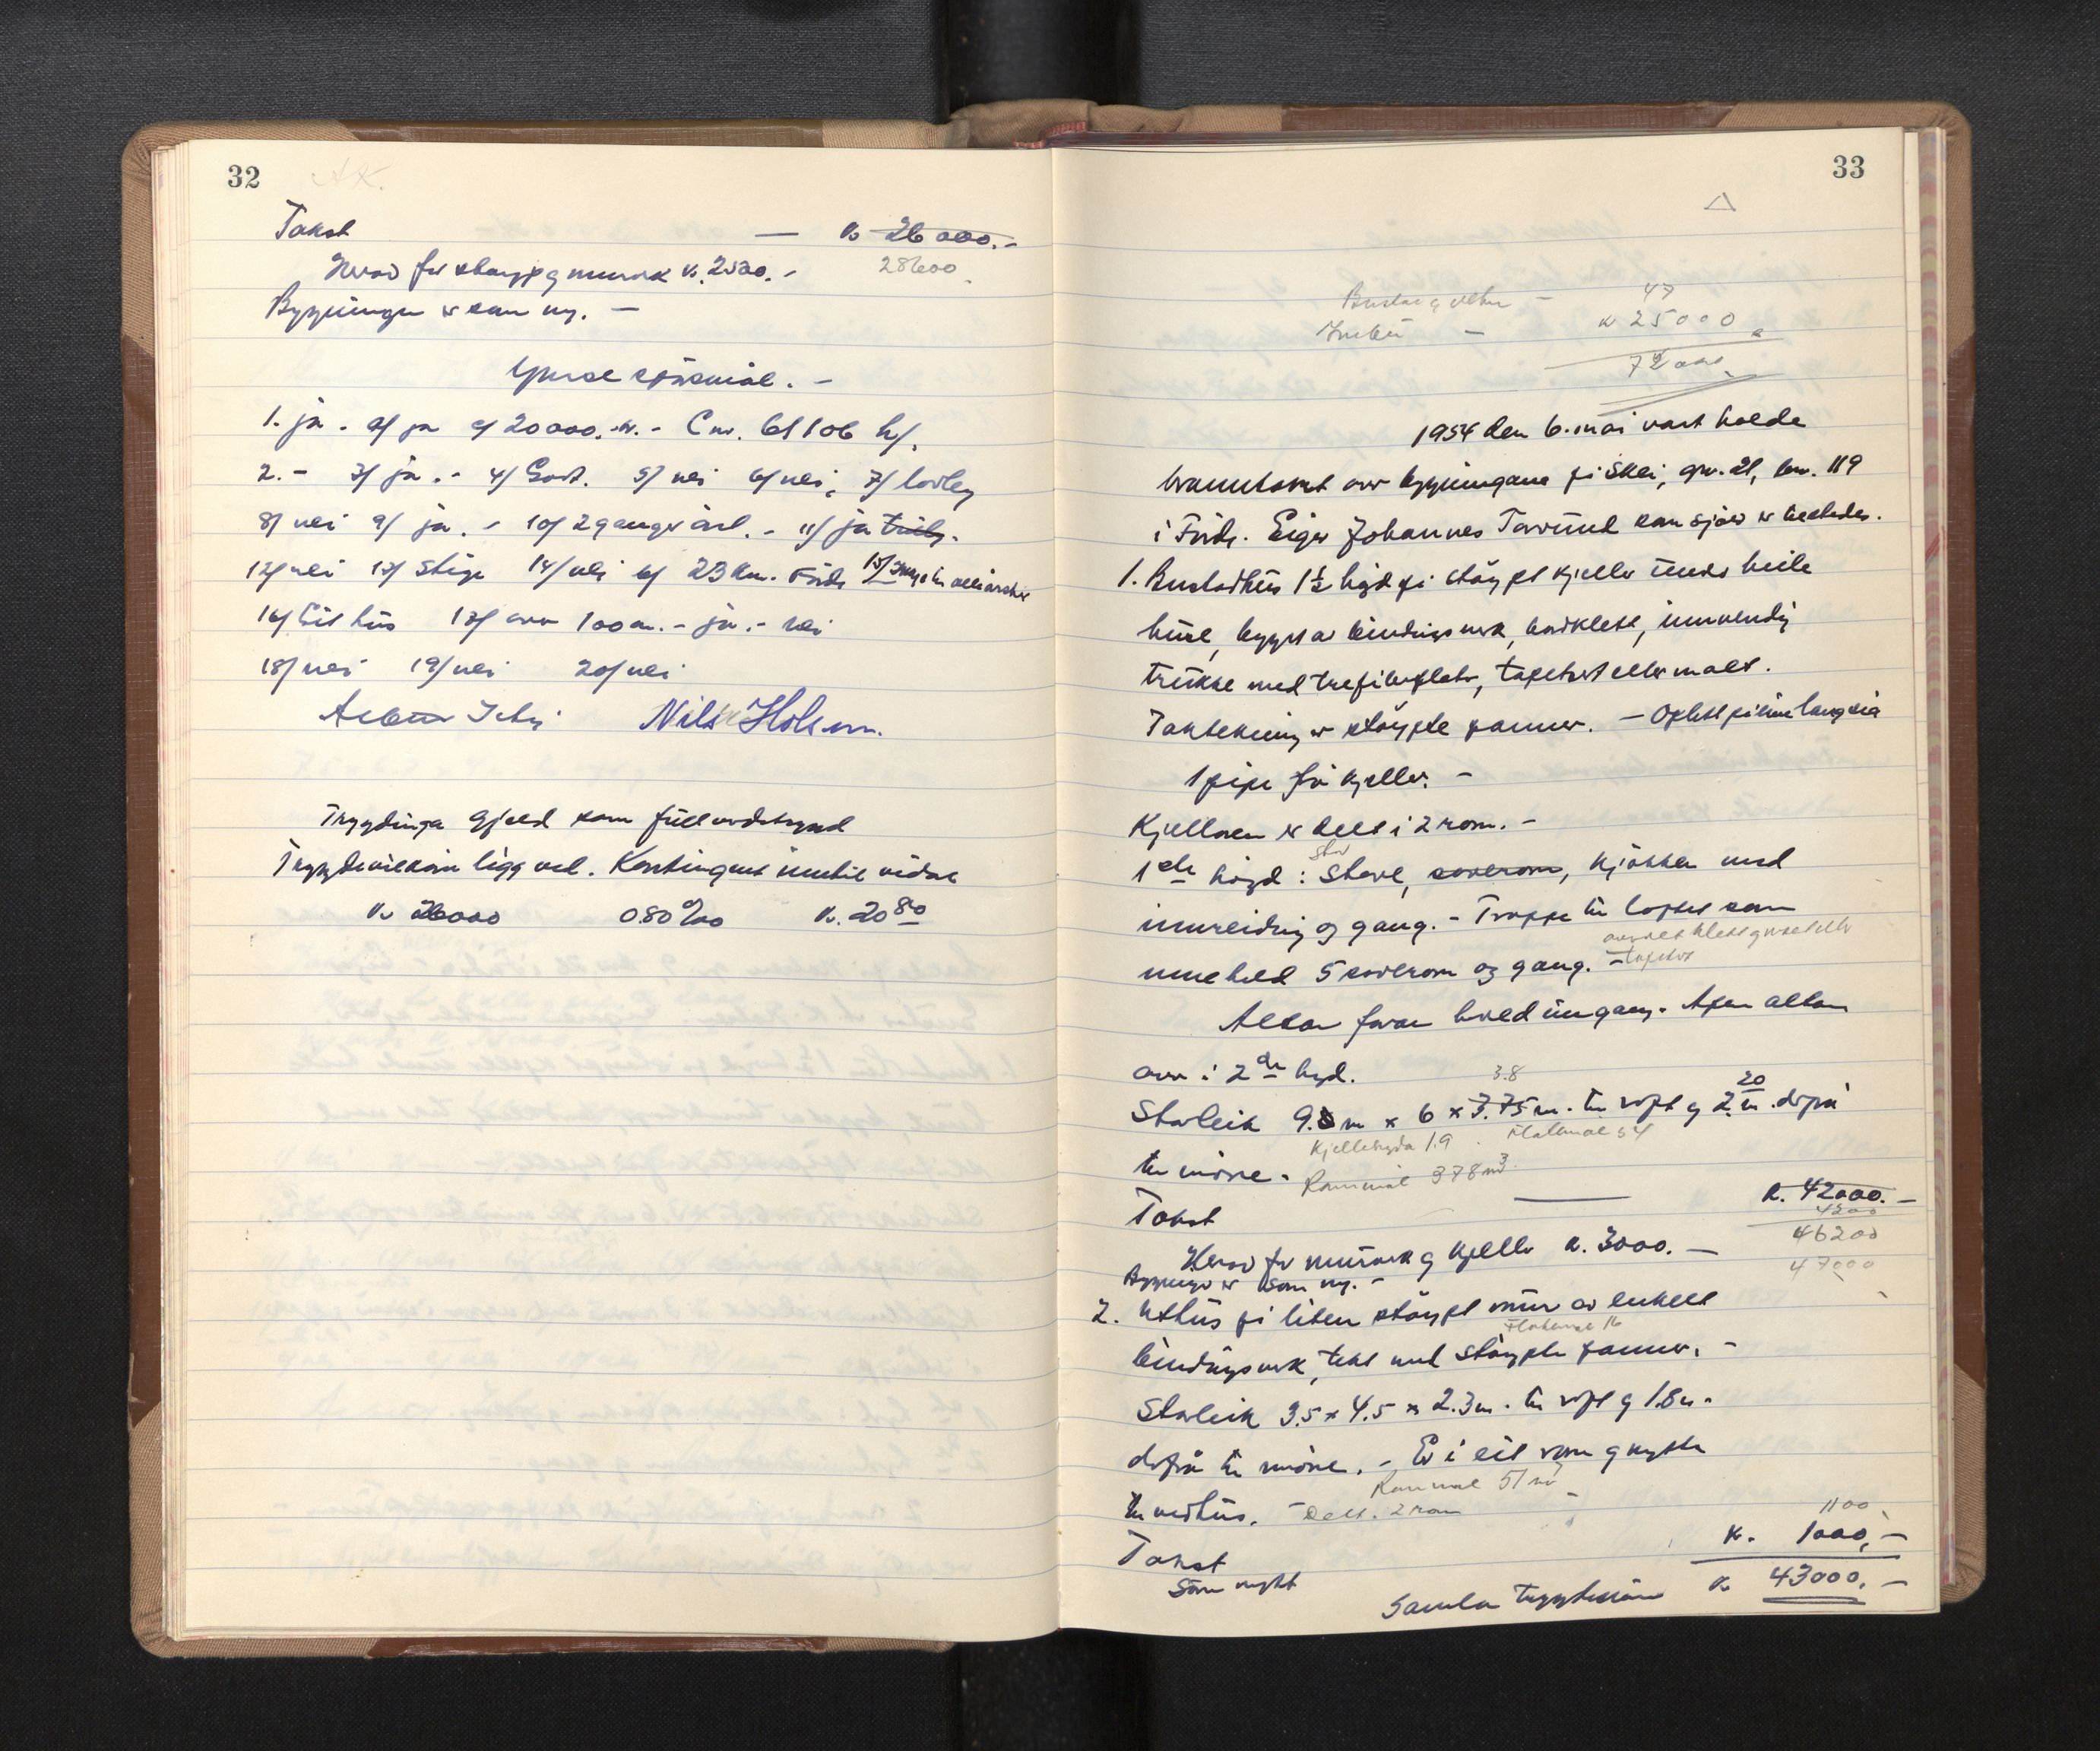 32
A K.
Takst — kr 26000.-
Herav for støyp og murverk kr. 2500.- 28600
Bygningen er som ny. —
Ymse spørsmål. -
1. ja. a/ ja c/ 20000.- kr. - C nr. 61106 h/.
2. - 3/ ja. - 4/ Godt. 5/ nei 6/ nei, 7/ lovleg
8/ nei 9/ ja. - 10/ 2 gangar årl. - 11/ ja
12/ nei 13/ Stige 14/ nei 23 km. Førde 15/
16/ Eit hus 17/ over 100 m. - ja. - nei
18/ nei 19/ nei 20/ nei
Nils Holsen.
Trygdinga gjeld som fullverdstrygd
Trygdevilkåra ligg ved. Kontingent inntil vidare
kr 26000 0.80 ‰ kr. 20 80
33
Bustad og uthus — 47
Innbu — kr 25000
72000
1954 den 6. mai vart halde
branntakst over bygningane på Skei, gnr. 21, bnr. 119
i Førde. Eigar Johannes som sjølv er tilstades.
1. Bustadhus 1½ høgd på støypt kjellar under heile
huset, bygt av bindingsverk, bordkledt, innvendig
trukke med trefiberplater, tapetsert eller malt.
Taktekking er støypte panner. — Oplett på eine langsida
1 pipe frå kjellar. -
Kjellaren er delt i 2 rom. -
1ste høgd: Stove, soverom, kjøkken med
innreiding og gang. - Trapp til loftet som
inneheld 5 soverom og gang. -
tapetsert
Altan foran hovedinngang. Apen altan
over i 2dre høgd.
3.8 20
Storleik 9.8 m x 6 x 3.75 m. til røst og 2. m. derfrå
Kjellarhøgda 1.9 Flatemål 54
til møne. Rommål 378 m3
Takst kr. 42000.-
4200
Herav for murverk og kjellar kr. 3000. — 46200
Bygninga er som ny. - 47000
2. Uthus på liten støypt mur av enkelt
Flatemål 16
bindingsverk, tekt med støypte panner. -
Storleik 3.5 x 4.5 x 2.3 m. til røst og 1.8 m.
derfrå til møne. - Er i eit rom og nytta
Rommål 51 m3
til vedhus. - Delt i 2 rom
1100
Takst kr. 1000,-
Som nytt
Samla trygdesum kr 43000.-